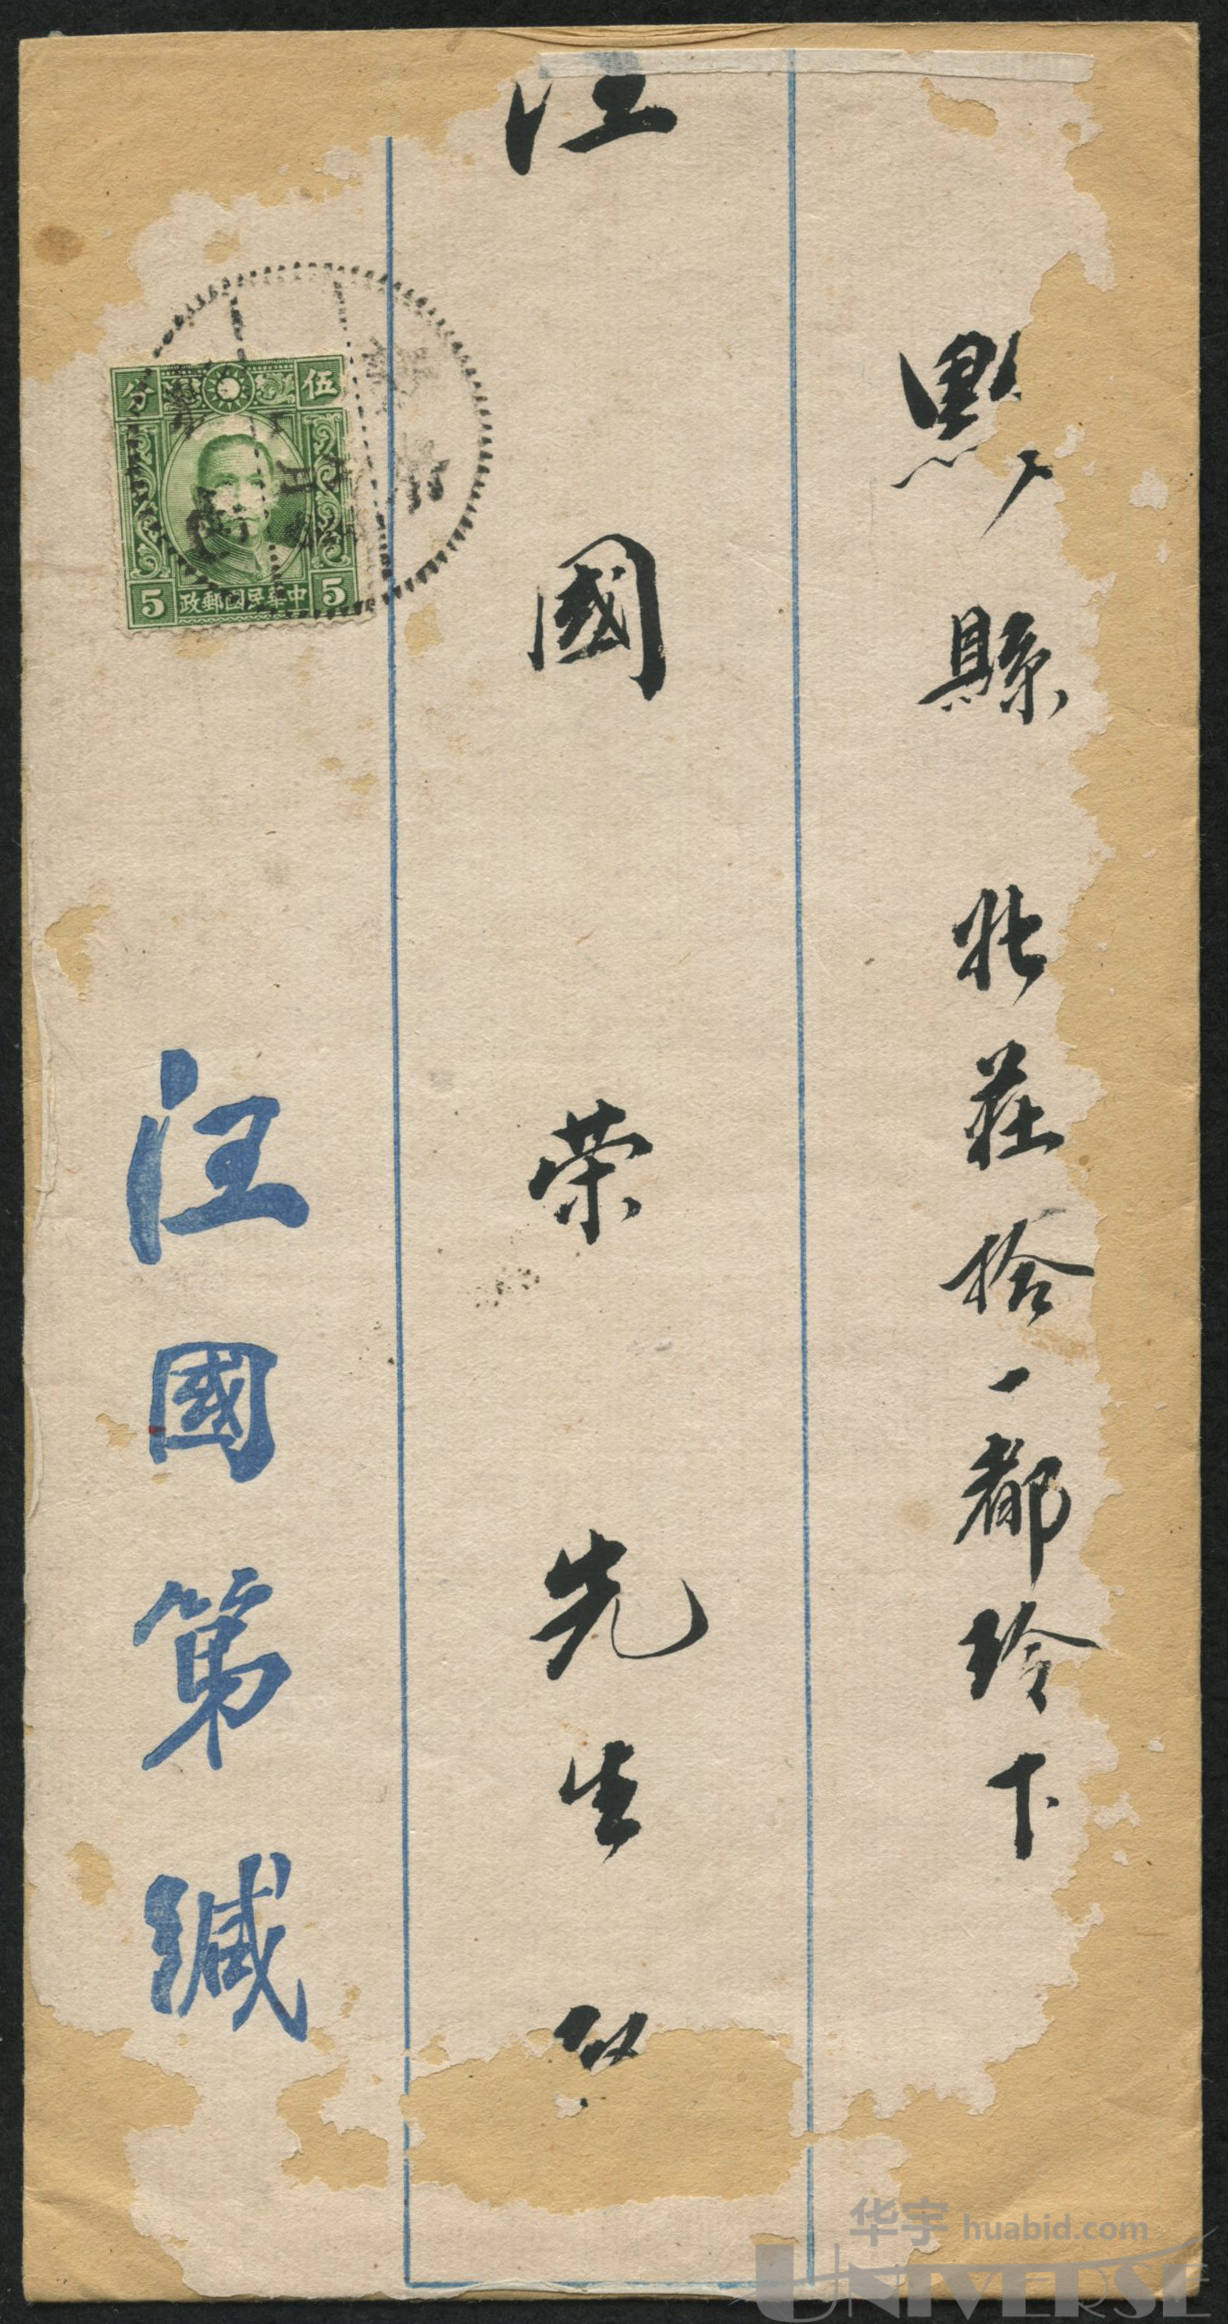 黟縣 北莊拾一都玲下
汪國荣先生
汪國第緘
伍分
5 中華民國郵政 5
月
华宇 huabid.com
UNIVERSE